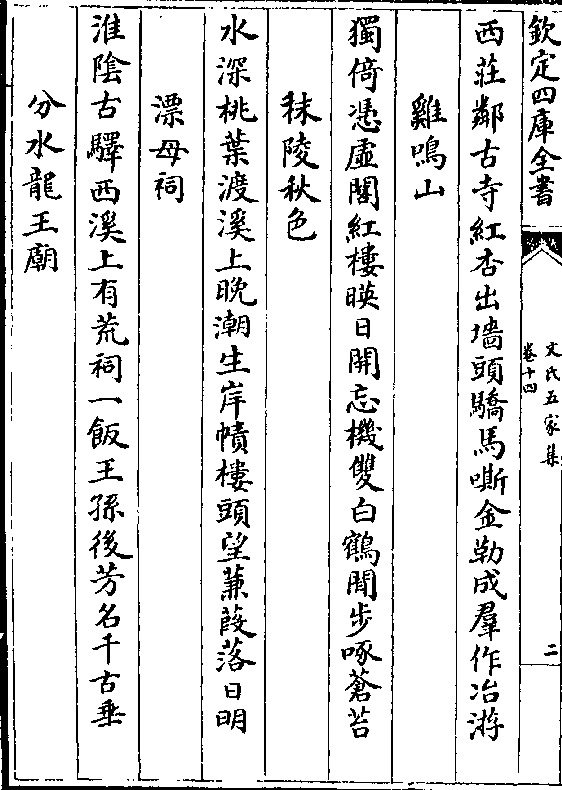 欽定四庫全書
文氏五家集
卷十四
二
西莊鄰古寺紅杏出墻頭驕馬嘶金勒成羣作冶游
雞鳴山
獨倚憑虛閣紅樓暎日開忘機雙白鶴閒步啄蒼苔
秣陵秋色
水深桃葉渡溪上晩潮生岸幘樓頭望蒹葭落日明
漂母祠
淮隂古驛西溪上有荒祠一飯王孫後芳名千古垂
分水龍王廟